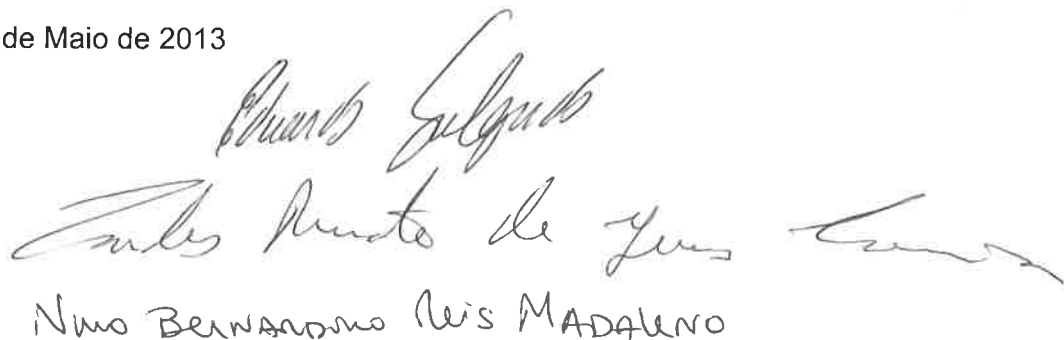 de Maio de 2013
Eduardo Salgado
Carlos Renato de
Nuno BERNARDINO Reis MADALENO